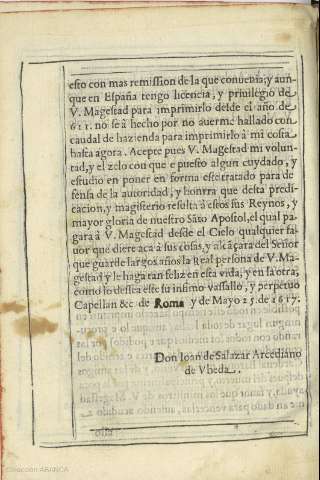 esto con mas remission de la que conuenia; y aun-
que en España tengo licencia, y priuilegio de
V. Magestad para imprimirlo desde el año de
611. no se à hecho por no auerme hallado con
caudal de hazienda para imprimirlo à mi costa
hasta agora. Acepte pues V. Magestad mi volun-
tad, y el zelo con que e puesto algun cuydado, y
estudio en poner en forma este tratado para de-
fensa de la autoridad, y honrra que desta predi-
cacion, y magisterio resulta à estos sus Reynos, y
mayor gloria de nuestro Sãto Apostol, el qual pa-
gara à V. Magestad desde el Cielo qualquier fa-
uor que diere aca à sus cosas, y alcãçara del Señor
que guarde largos años la Real persona de V. Ma-
gestad y le haga tan feliz en esta vida, y en la otra,
como lo dessea este su infimo vassallo, y perpetuo
Capellan &c de Roma y de Mayo 25. de 1617.
Don Ioan de Salazar Arcediano
de Vbeda.
Colección ABANCA